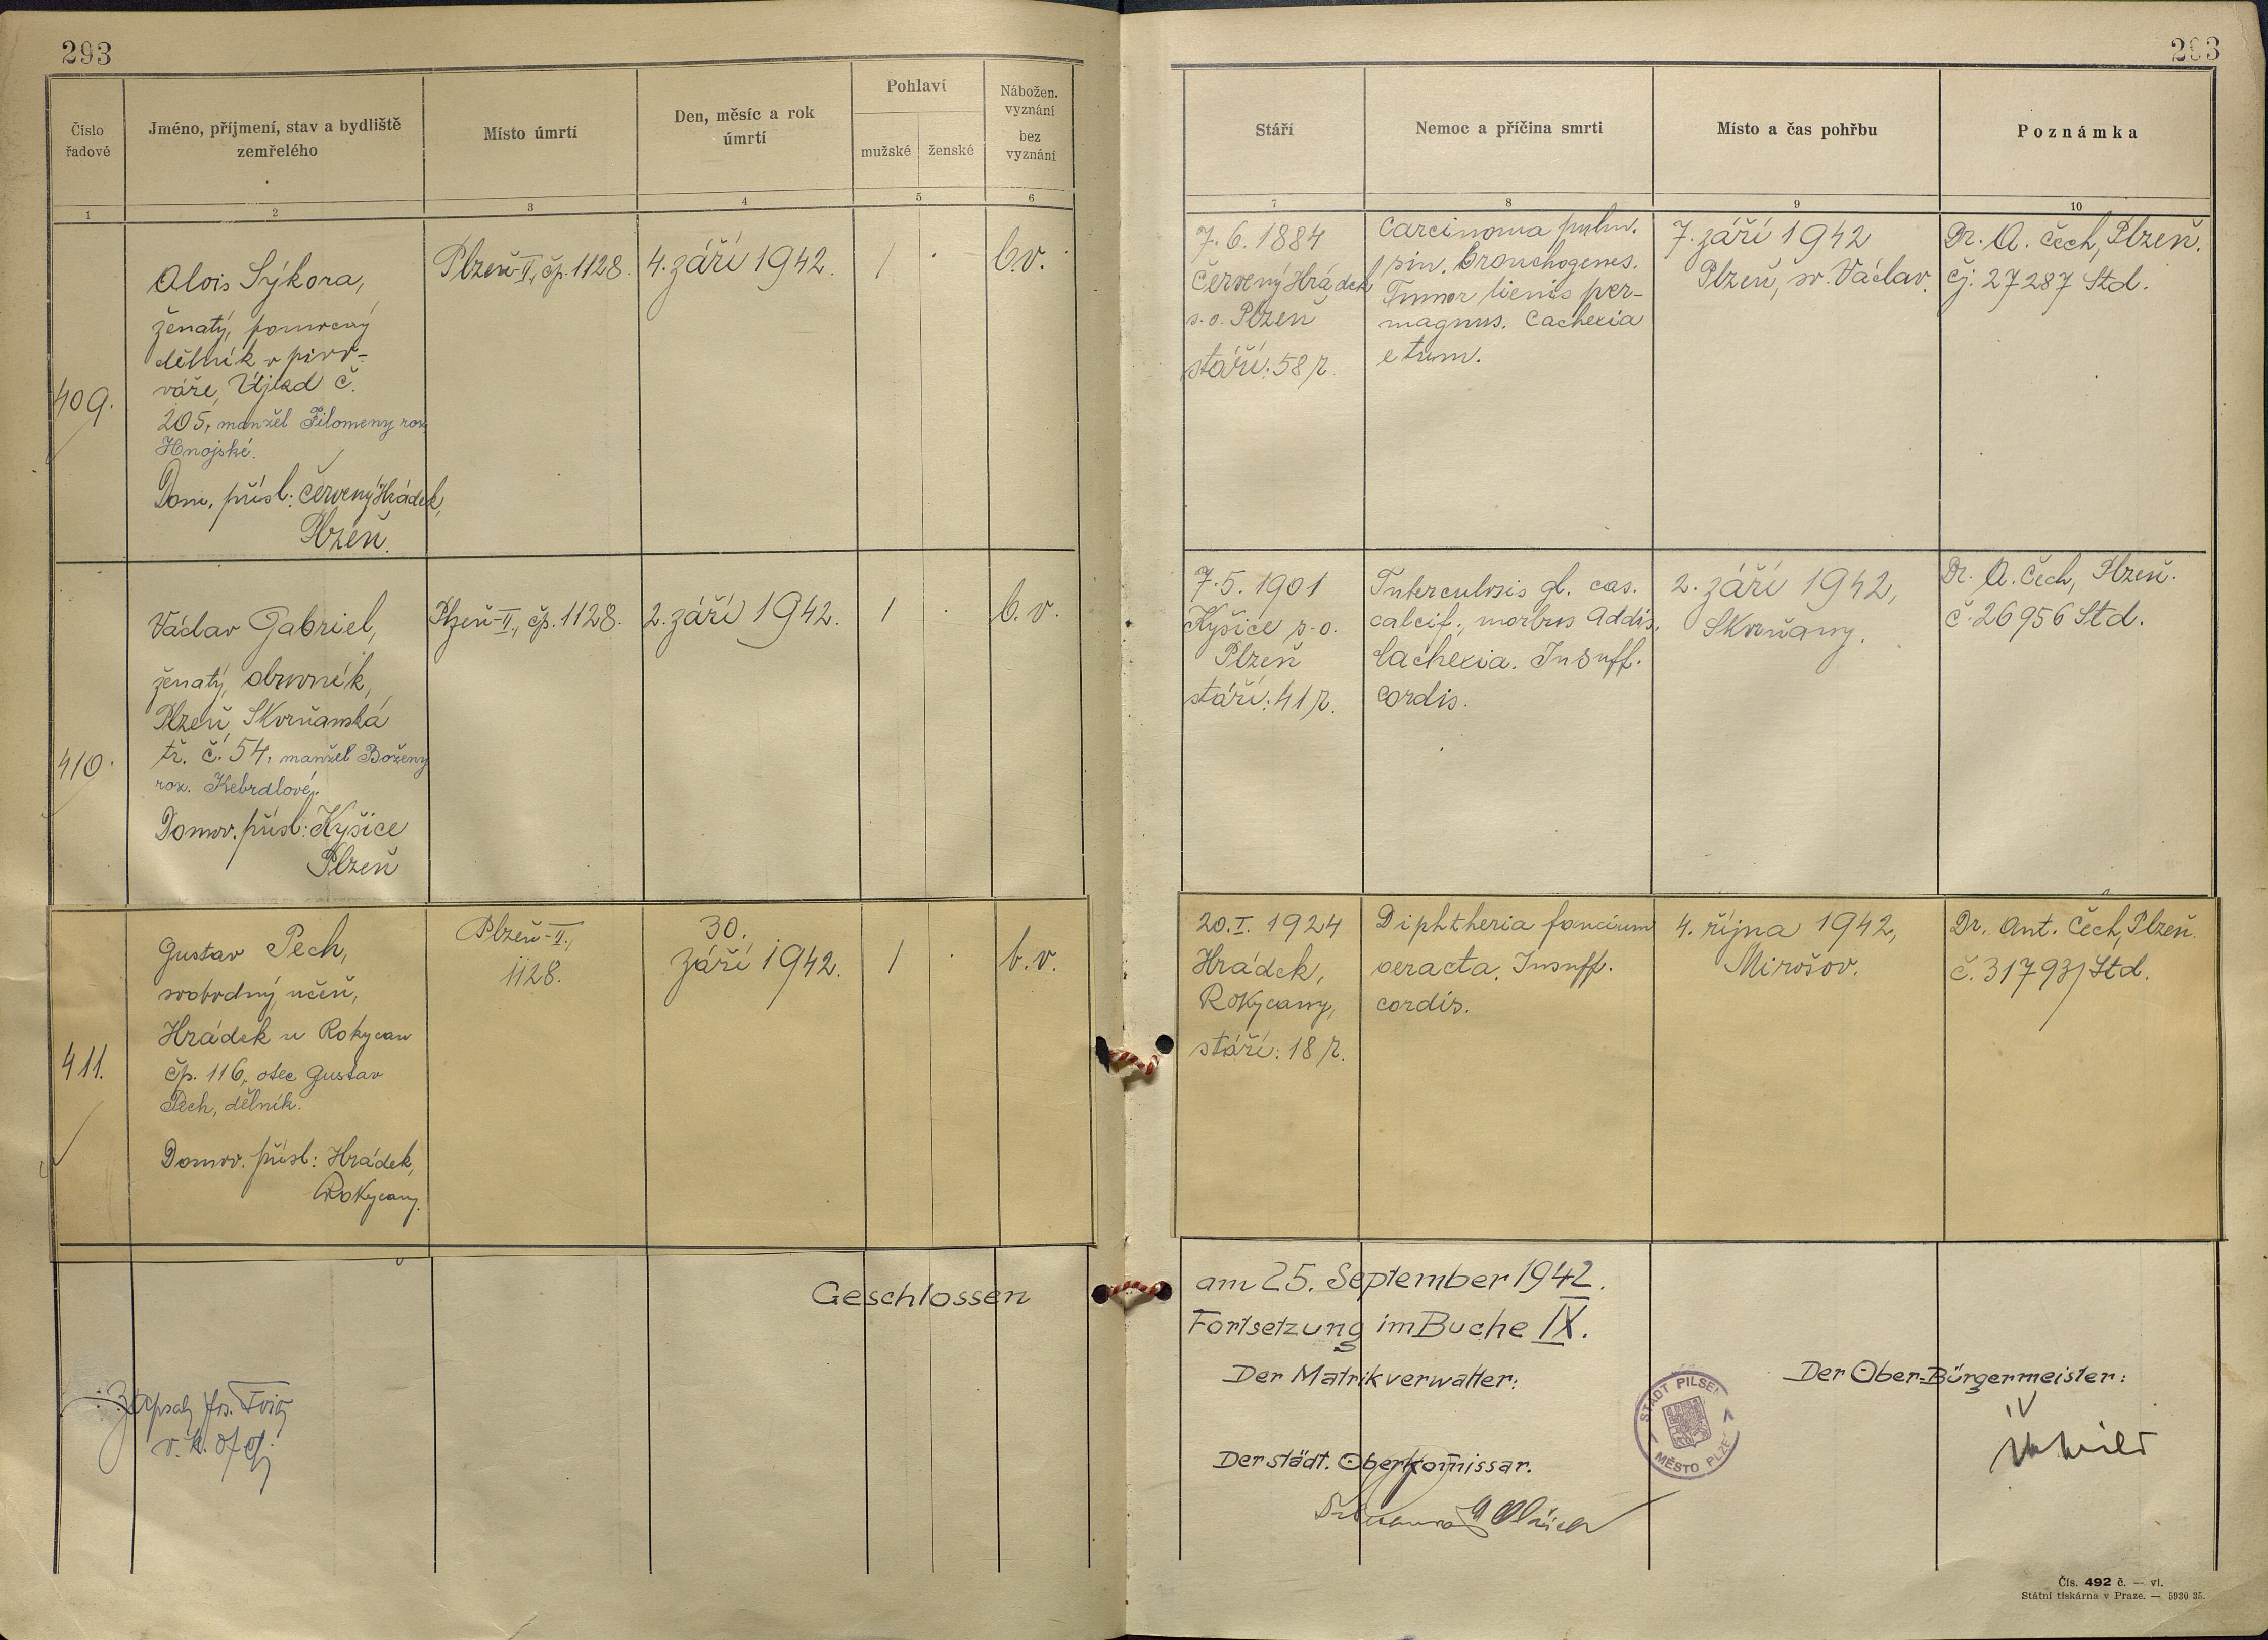 293
293
Číslo řadové
Jméno, příjmení, stav a bydliště zemřelého
Místo úmrtí
Den, měsíc a rok úmrtí
Pohlaví
mužské
ženské
Nábožen. vyznání
bez vyznání
Stáří
Nemoc a příčina smrti
Místo a čas pohřbu
Poznámka
1
2
3
4
5
6
7
8
9
10
409.
Alois Sýkora,
ženatý, pomocný
dělník v pivo-
váře, Újezd č.
205, manžel Filomeny roz.
Hnojské.
Dom. přísl: Červený Hrádek,
Plzeň.
Plzeň-II., čp. 1128.
4. září 1942.
1
.
b.v.
7.6.1884
Červený Hrádek
p.o. Plzeň
stáří: 58 r.
Carcinoma pulm.
sin. bronchogenes.
Tumor lienis per-
magnus. Cachexia
e tum.
7. září 1942
Plzeň, sv. Václav.
Dr. A. Čech, Plzeň.
čj: 27287 Std.
410.
Václav Gabriel,
ženatý, obuvník,
Plzeň, Skvrňanská
tř. č. 54, manžel Boženy
roz. Kebrdlové.
Domov. přísl: Kyšice
Plzeň
Plzeň-II., čp. 1128.
2. září 1942.
1
.
b.v.
7.5.1901
Kyšice p.o.
Plzeň
stáří: 41 r.
Tuberculosis gl. cas.
calcif., morbus Addis.
Cachexia. Insuff.
cordis.
2. září 1942,
Skvrňany.
Dr. A. Čech, Plzeň.
č. 26956 Std.
411.
Gustav Pech,
svobodný, učeň,
Hrádek u Rokycan
čp. 116, otec Gustav
Pech, dělník.
Domov. přísl: Hrádek,
Rokycany.
Plzeň-II.,
1128.
30.
září 1942.
1
.
b.v.
20.I. 1924
Hrádek,
Rokycany,
stáří: 18 r.
Diphtheria faucium
peracta. Insuff.
cordis.
4. října 1942,
Mirošov.
Dr. Ant. Čech, Plzeň.
č. 31793/Std.
Geschlossen
am 25. September 1942.
Fortsetzung im Buche IX.
Der Matrikverwalter:
Der Ober-Bürgermeister:
IV
Der städt. Oberkom̄issar.
STADT PILSEN
MĚSTO PLZEŇ
Zapsal Jos.
Čís. 492 č. — vl.
Státní tiskárna v Praze. — 5930 35.